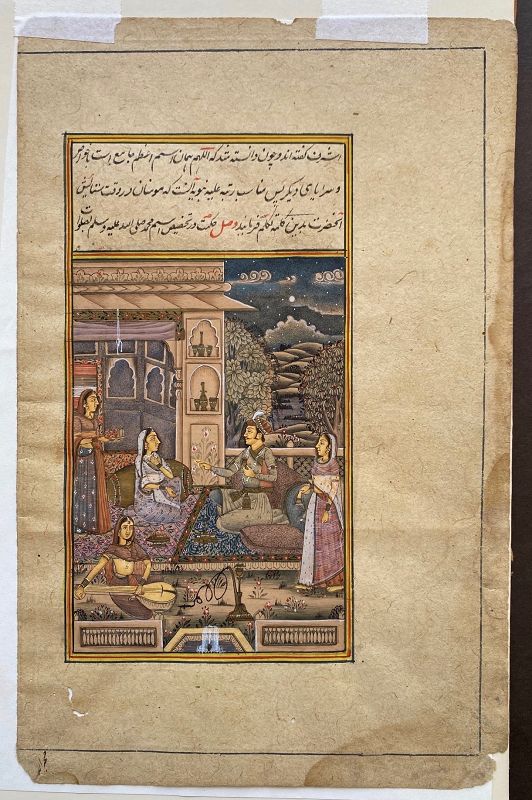 اشرف گفته اند و چون دانسته شد که اللهم همان اسم اعظم جامع است
و سرایای دیگر پس مناسب رتبه علیه نبویه آنست که مومنان در وقت ستایش
آنحضرت بدین کلمه تکلم فرمایند وصل حکمت در تخصیص اسم محمد صلی الله علیه وسلم بصلوات